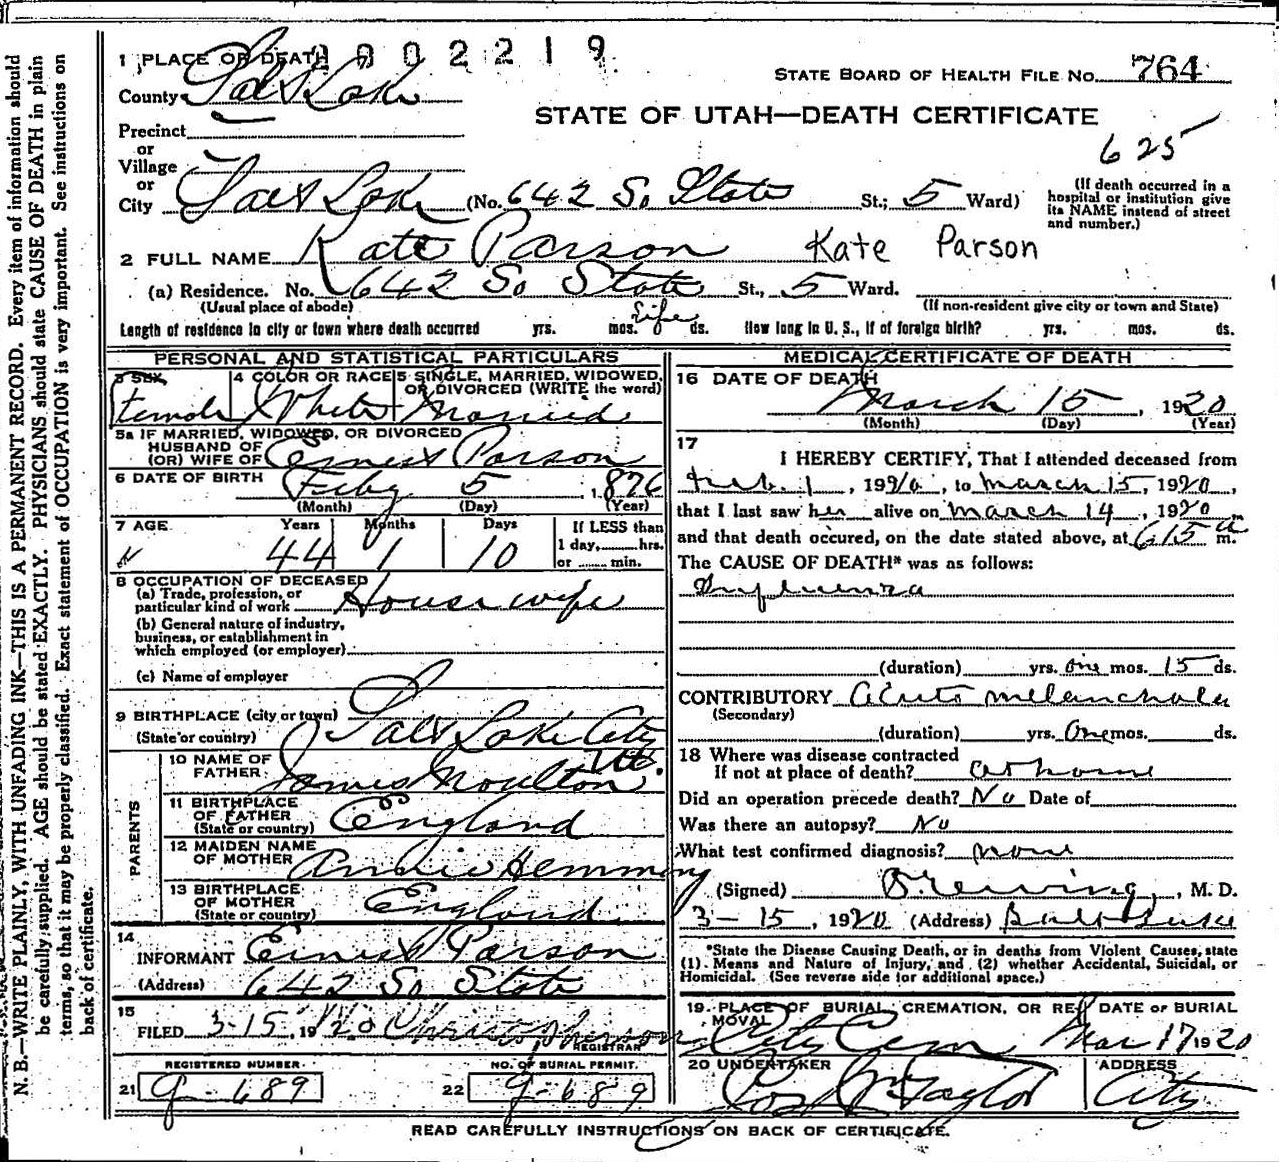 N. B.—WRITE PLAINLY, WITH UNFADING INK—THIS IS A PERMANENT RECORD. Every item of information should
be carefully supplied. AGE should be stated EXACTLY. PHYSICIANS should state CAUSE OF DEATH in plain
terms, so that it may be properly classified. Exact statement of OCCUPATION is very important. See instructions on
back of certificate.
1 PLACE OF DEATH 0002219
STATE BOARD OF HEALTH FILE No. 764
County Salt Lake
STATE OF UTAH—DEATH CERTIFICATE
625
Precinct
or
Village
or
City Salt Lake (No. 642 So State St.; 5 Ward)
(If death occurred in a
hospital or institution give
its NAME instead of street
and number.)
2 FULL NAME Kate Parson Kate Parson
(a) Residence. No. 642 So State St., 5 Ward.
(Usual place of abode) (If non-resident give city or town and State)
Length of residence in city or town where death occurred yrs. mos. Life ds. How long in U. S., if of foreign birth? yrs. mos. ds.
PERSONAL AND STATISTICAL PARTICULARS
3 SEX 4 COLOR OR RACE 5 SINGLE, MARRIED, WIDOWED,
OR DIVORCED (WRITE the word)
Female White Married
5a IF MARRIED, WIDOWED, OR DIVORCED
HUSBAND OF
(OR) WIFE OF Ernest Parson
6 DATE OF BIRTH Feby 5, 1876
(Month) (Day) (Year)
7 AGE Years Months Days If LESS than
1 day, hrs.
or min.
44 1 10
8 OCCUPATION OF DECEASED
(a) Trade, profession, or
particular kind of work House wife
(b) General nature of industry,
business, or establishment in
which employed (or employer)
(c) Name of employer
9 BIRTHPLACE (city or town)
(State or country) Salt Lake City
Ut.
PARENTS
10 NAME OF
FATHER James Moulton
11 BIRTHPLACE
OF FATHER
(State or country) England
12 MAIDEN NAME
OF MOTHER Annie Hemming
13 BIRTHPLACE
OF MOTHER
(State or country) England
14
INFORMANT Ernest Parson
(Address) 642 So State
15
FILED 3-15, 1920
REGISTRAR
REGISTERED NUMBER. NO. OF BURIAL PERMIT.
21 G-689 22 G-689
MEDICAL CERTIFICATE OF DEATH
16 DATE OF DEATH
March 15, 1920
(Month) (Day) (Year)
17
I HEREBY CERTIFY, That I attended deceased from
Feb. 1, 1920, to March 15, 1920,
that I last saw her alive on March 14, 1920,
and that death occured, on the date stated above, at 615 a m.
The CAUSE OF DEATH* was as follows:
Influenza
(duration) yrs. one mos. 15 ds.
CONTRIBUTORY acute melancholia
(Secondary)
(duration) yrs. One mos. ds.
18 Where was disease contracted
If not at place of death? at home
Did an operation precede death? No Date of
Was there an autopsy? No
What test confirmed diagnosis? none
(Signed) , M. D.
3-15, 1920 (Address) Salt Lake
*State the Disease Causing Death, or in deaths from Violent Causes, state
(1) Means and Nature of Injury, and (2) whether Accidental, Suicidal, or
Homicidal. (See reverse side for additional space.)
19 PLACE OF BURIAL, CREMATION, OR RE- DATE OF BURIAL
MOVAL
City Cem Mar 17 1920
20 UNDERTAKER ADDRESS
Taylor City
READ CAREFULLY INSTRUCTIONS ON BACK OF CERTIFICATE.